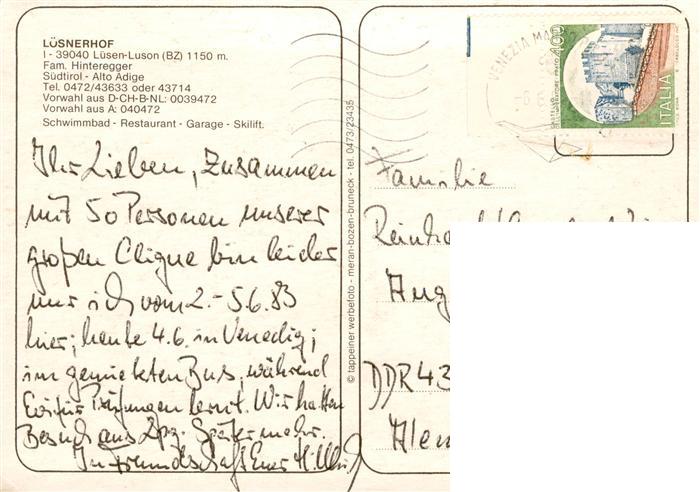 LÜSNERHOF
I - 39040 Lüsen-Luson (BZ) 1150 m.
Fam. Hinteregger
Südtirol - Alto Adige
Tel. 0472/43633 oder 43714
Vorwahl aus D-CH-B-NL: 0039472
Vorwahl aus A: 040472
Schwimmbad - Restaurant - Garage - Skilift.
Ihr Lieben, zusammen
mit 50 Personen unserer
großen Clique bin leider
nur ich vom 2.-5.6.83
hier; heute 4.6. in Venedig;
im gemieteten Bus, während
Eva für Prüfungen lernt. Wir hatten
Besuch aus Lpz. Später mehr.
In Freundschaft Euer
© tappeiner werbefoto - meran-bozen-bruneck - tel. 0473/23435
VENEZIA
400
ITALIA
Familie
Reinh
Aug
DDR 43
Alen